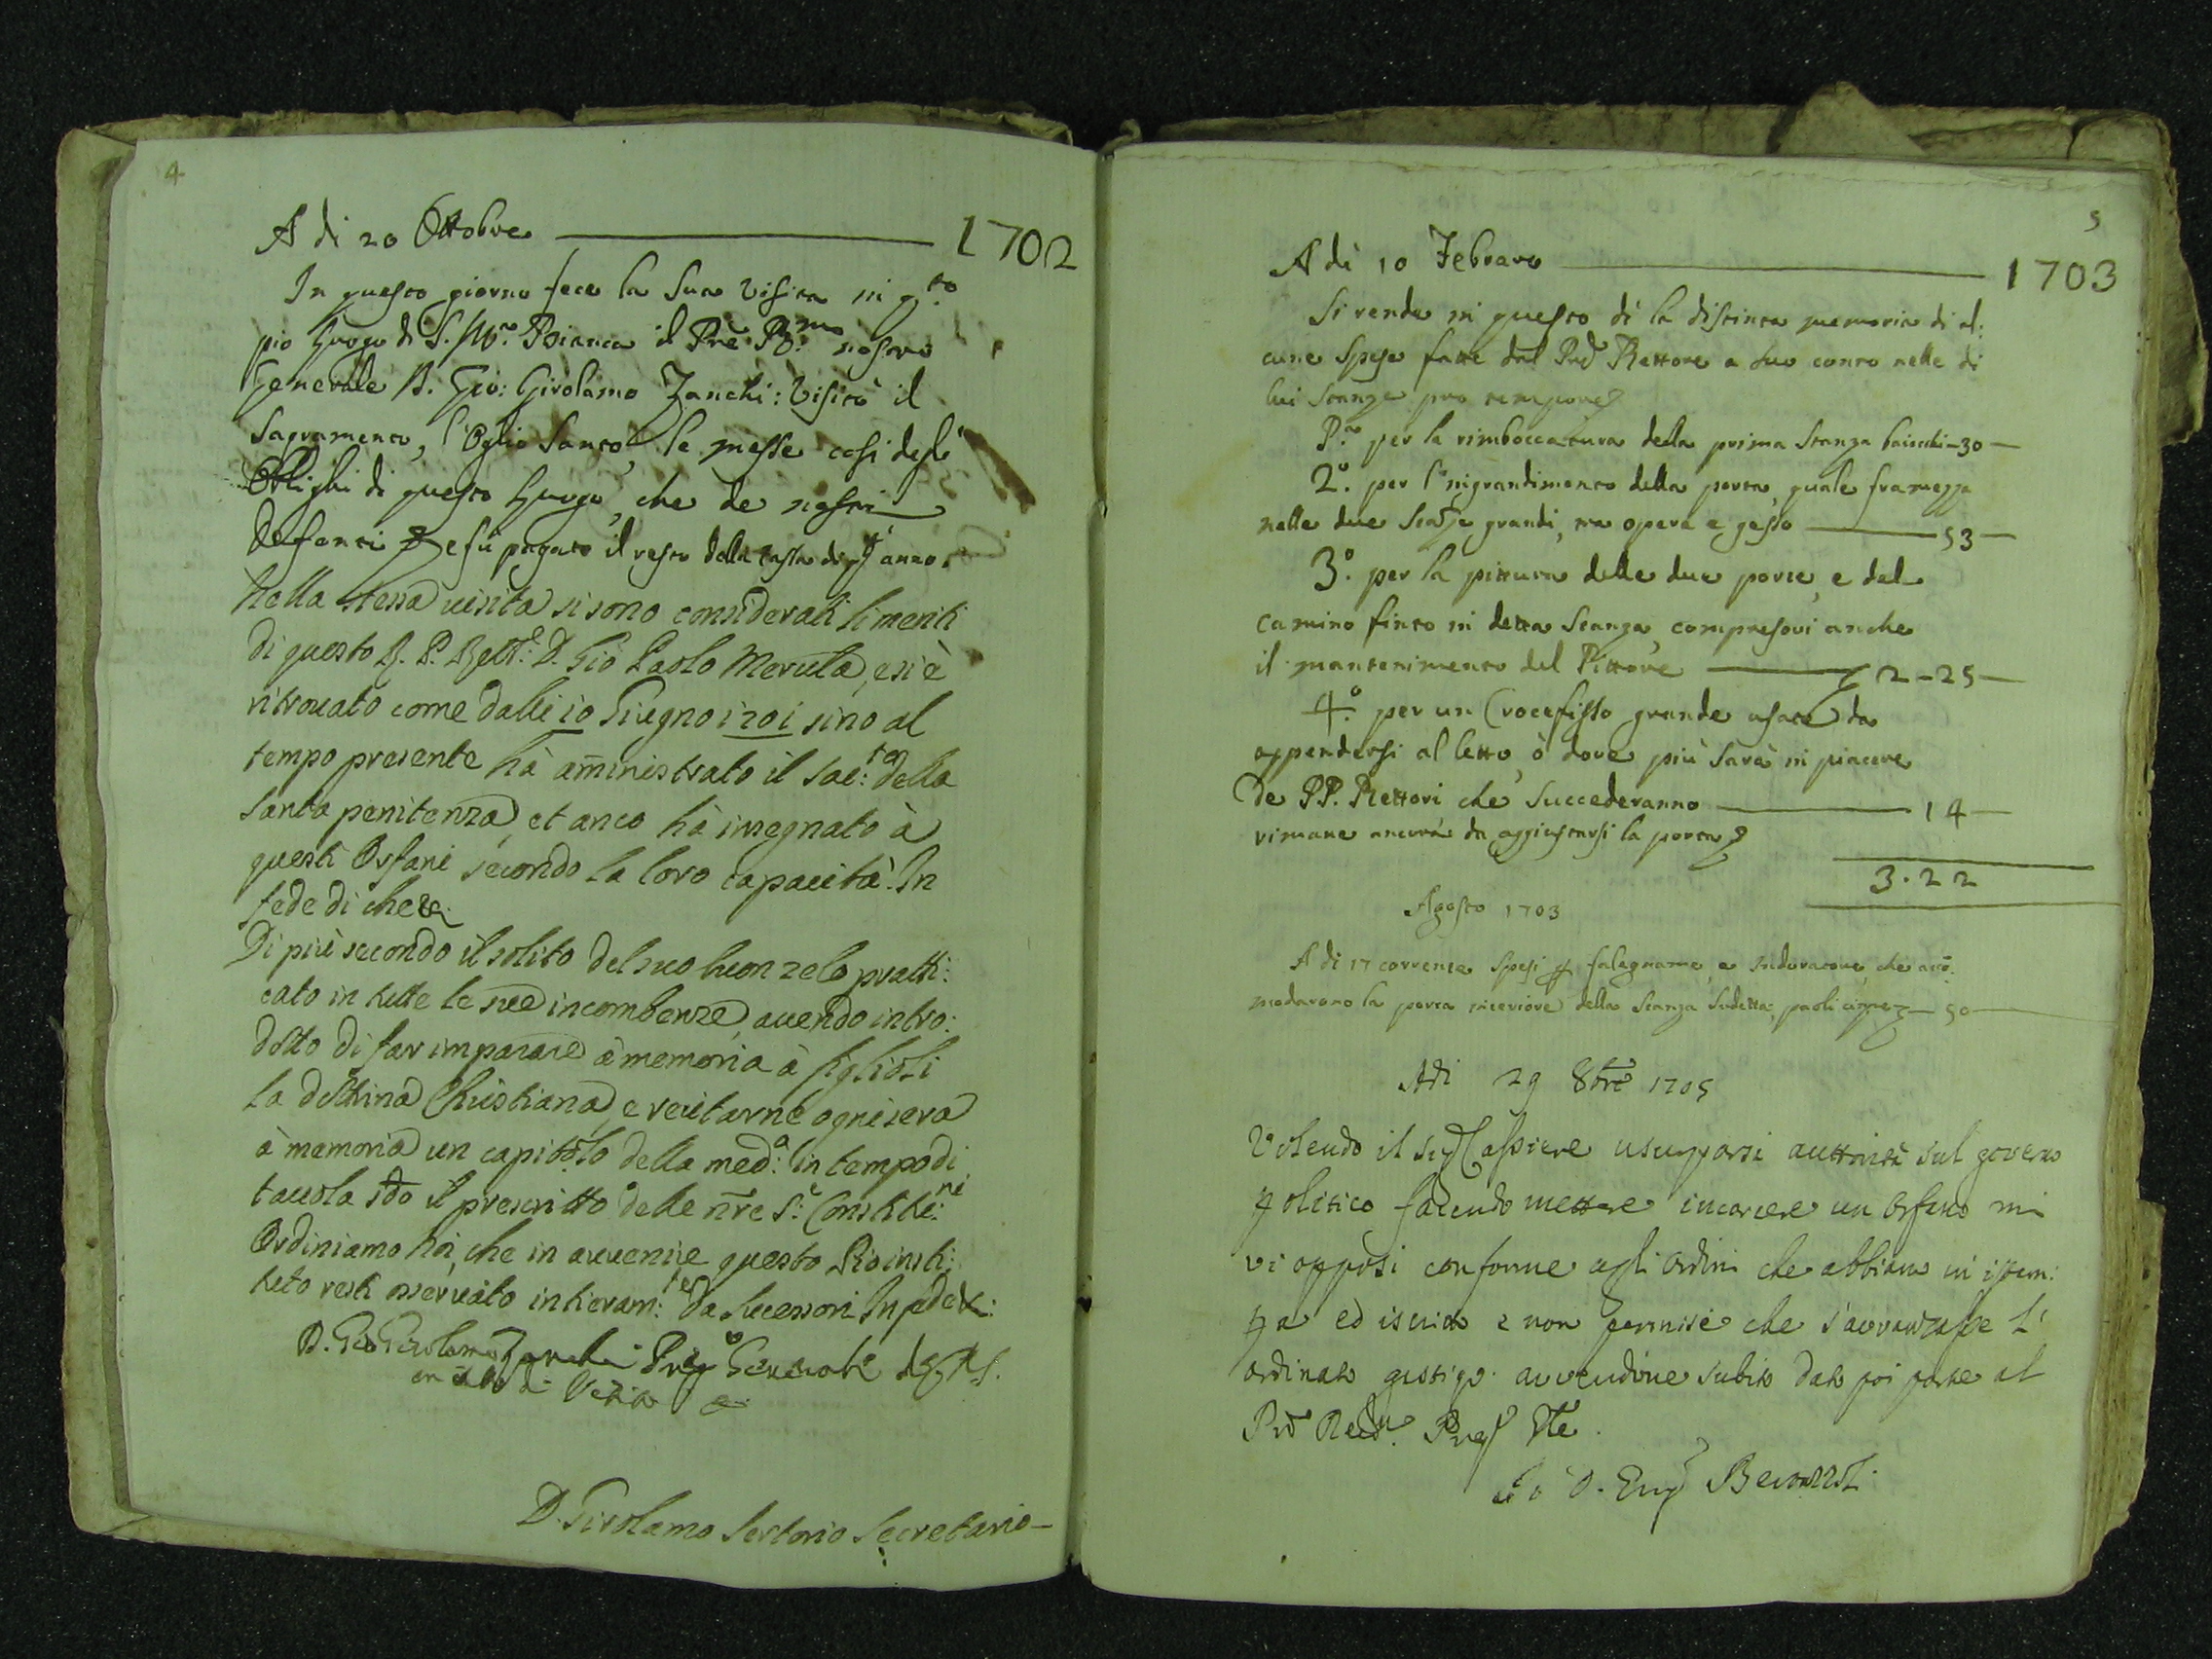 4
A di 20 Ottobre 1702
In questo giorno fece la Sua Visita in q.to
pio Luogo di S. M.a Bianca il Pre R.mo nostro
Generale D. Gio: Girolamo Zanchi: Visitò il
Sagramento, l'Oglio Santo, le messe così degl'
Oblighi di questo Luogo, che de nostri
Defonti e fù pagato il resto della tassa di q anno.
Nella stessa uisita si sono considerati li meriti
di questo R. P. Rett.e D. Gio Paolo Merula, e si è
ritrouato come dalli 10 Giugno 1701 sino al
tempo presente hà amministrato il Sac:to della
Santa penitenza, et anco hà insegnato à
questi Orfani secondo la loro capacità. In
fede di che &
Di più secondo il solito del suo buon zelo pratti:
cato in tutte le sue incombenze, auendo intro:
dotto di far imparare à memoria à figlioli
la dottrina Christiana, e recitarne ogni sera
à memoria un capitolo della med:a in tempo di
tauola sdo il prescritto delle nre S.e Constitu:ni
Ordiniamo Noi, che in auuenire questo Pio insti:
tuto resti osseruato intieram:te da Successori. In fede &:
D. Gio Girolamo Zanchi Pre Generale
in atto di Visita &
D. Girolamo Sertorio Secretario
5
A di 10 Febraro 1703
Si rende in questo dì la distinta memoria di al:
cune Spese fatte dal Pre Rettore a suo conto nelle di
lui Stanze pro tempore
P.a per la rimboccatura della prima Stanza baiocchi - 30 -
2.o per l'ingrandimento della porta, quale framezza
nelle due Stanze grandi, tra opera e gesso 53 -
3.o per la pittura delle due porte, e del
camino finto in detta Stanza, compresovi anche
il mantenimento del Pittore 2 - 25 -
4.o per un Crocefisso grande usato da
appendersi al letto, ò dove più sarà in piacere
de PP. Rettori che succederanno 14 -
rimane ancora da aggiustarsi la porta
3 . 22
Agosto 1703
A di 17 corrente Spesi p falegname, e Induratore, che acco:
modarono la porta inceriore della Stanza Sudetta, paoli cinque 50
Adi 29 8bre 1705
Volendo il Sig Cassiere usurparsi auttorità sul governo
politico facendo mettere in carcere un Orfano mi
vi opposi conforme agli ordini che abbiamo in istam:
pa ed iscritto e non permisi che s'avvanzasse l'
ordinato gastigo. avvendone subito dato poi parte al
Prd Rev.
D. Bevonzoli